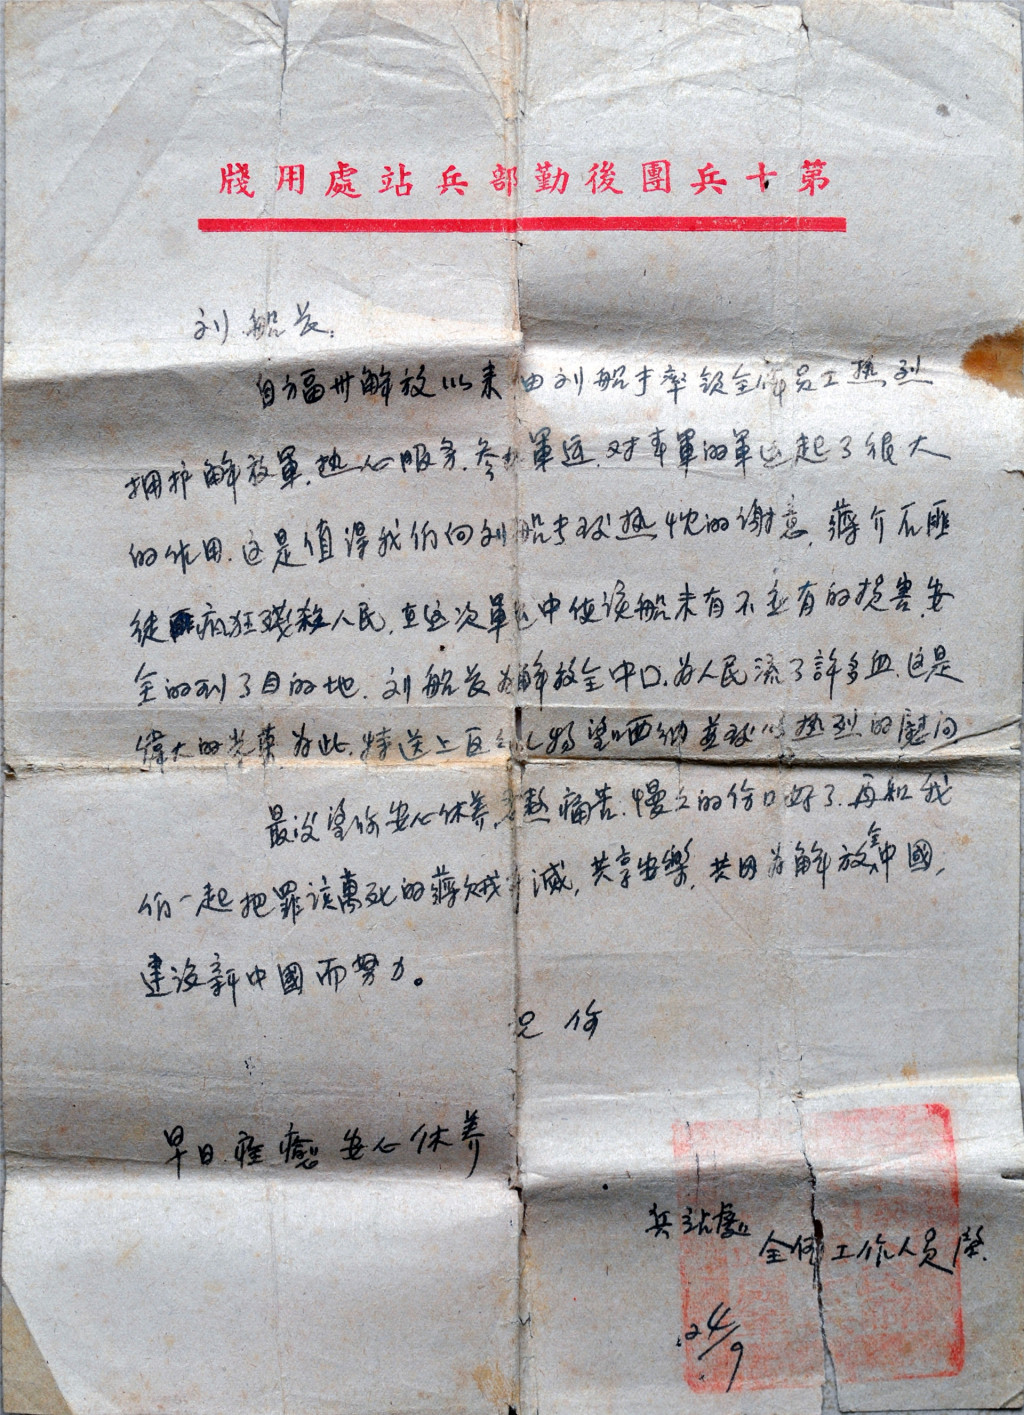 第十兵團後勤部兵站處用牋
刘船长：
自方福州解放以来，由刘船长率领全体员工热烈
拥护解放軍，热心服务，参加軍运，对我軍的軍运起了很大
的作用，这是值得我们向刘船长致热忱的谢意，蔣介石匪
徒瘋狂残殺人民，在这次軍运中使该船未有不应有的损害，安
全的到了目的地，刘船长为解放全中口，为人民流了許多血，这是
偉大的光荣，为此，特送上区 礼物望哂纳並致以热烈的慰问
最后望你安心休养， 熬痛苦，慢慢的伤口好了，再和我
们一起把罪该萬死的蔣贼 滅，共享安樂，共同为解放全中國，
建设新中國而努力。
祝你
早日痊癒 安心休养
兵站處
全体工作人员啓
24/9